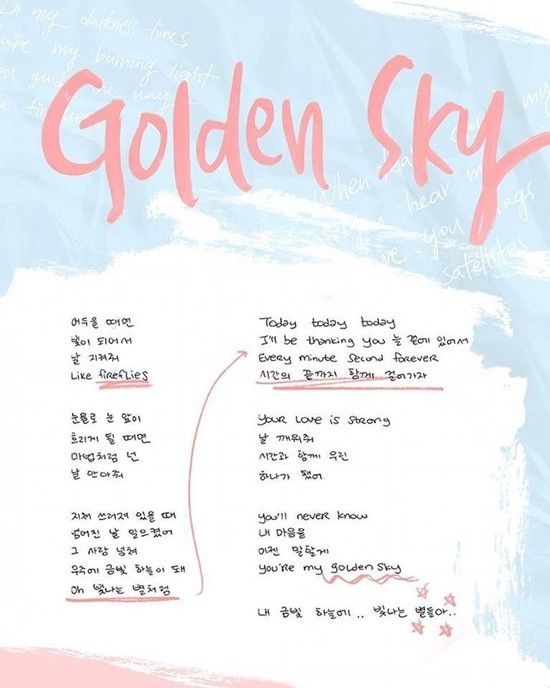 Oh my darkness times
You're my burning light
You guide the way
Golden Sky
When
hear my
you
satellites
어두울 때면
빛이 되어서
날 지켜줘
Like fireflies
눈물로 눈 앞이
흐리게 될 때면
마법처럼 넌
날 안아줘
지쳐 쓰러져 있을 때
넘어진 날 일으켰어
그 사랑 넘쳐
우주에 금빛 하늘이 돼
Oh 빛나는 별처럼
Today today today
I'll be thanking you 늘 곁에 있어서
Every minute second forever
시간의 끝까지 함께 걸어가자
Your Love is strong
날 깨워줘
시간과 함께 우린
하나가 됐어
you'll never know
내 마음을
이젠 말할게
you're my golden sky
내 금빛 하늘에.. 빛나는 별들아..